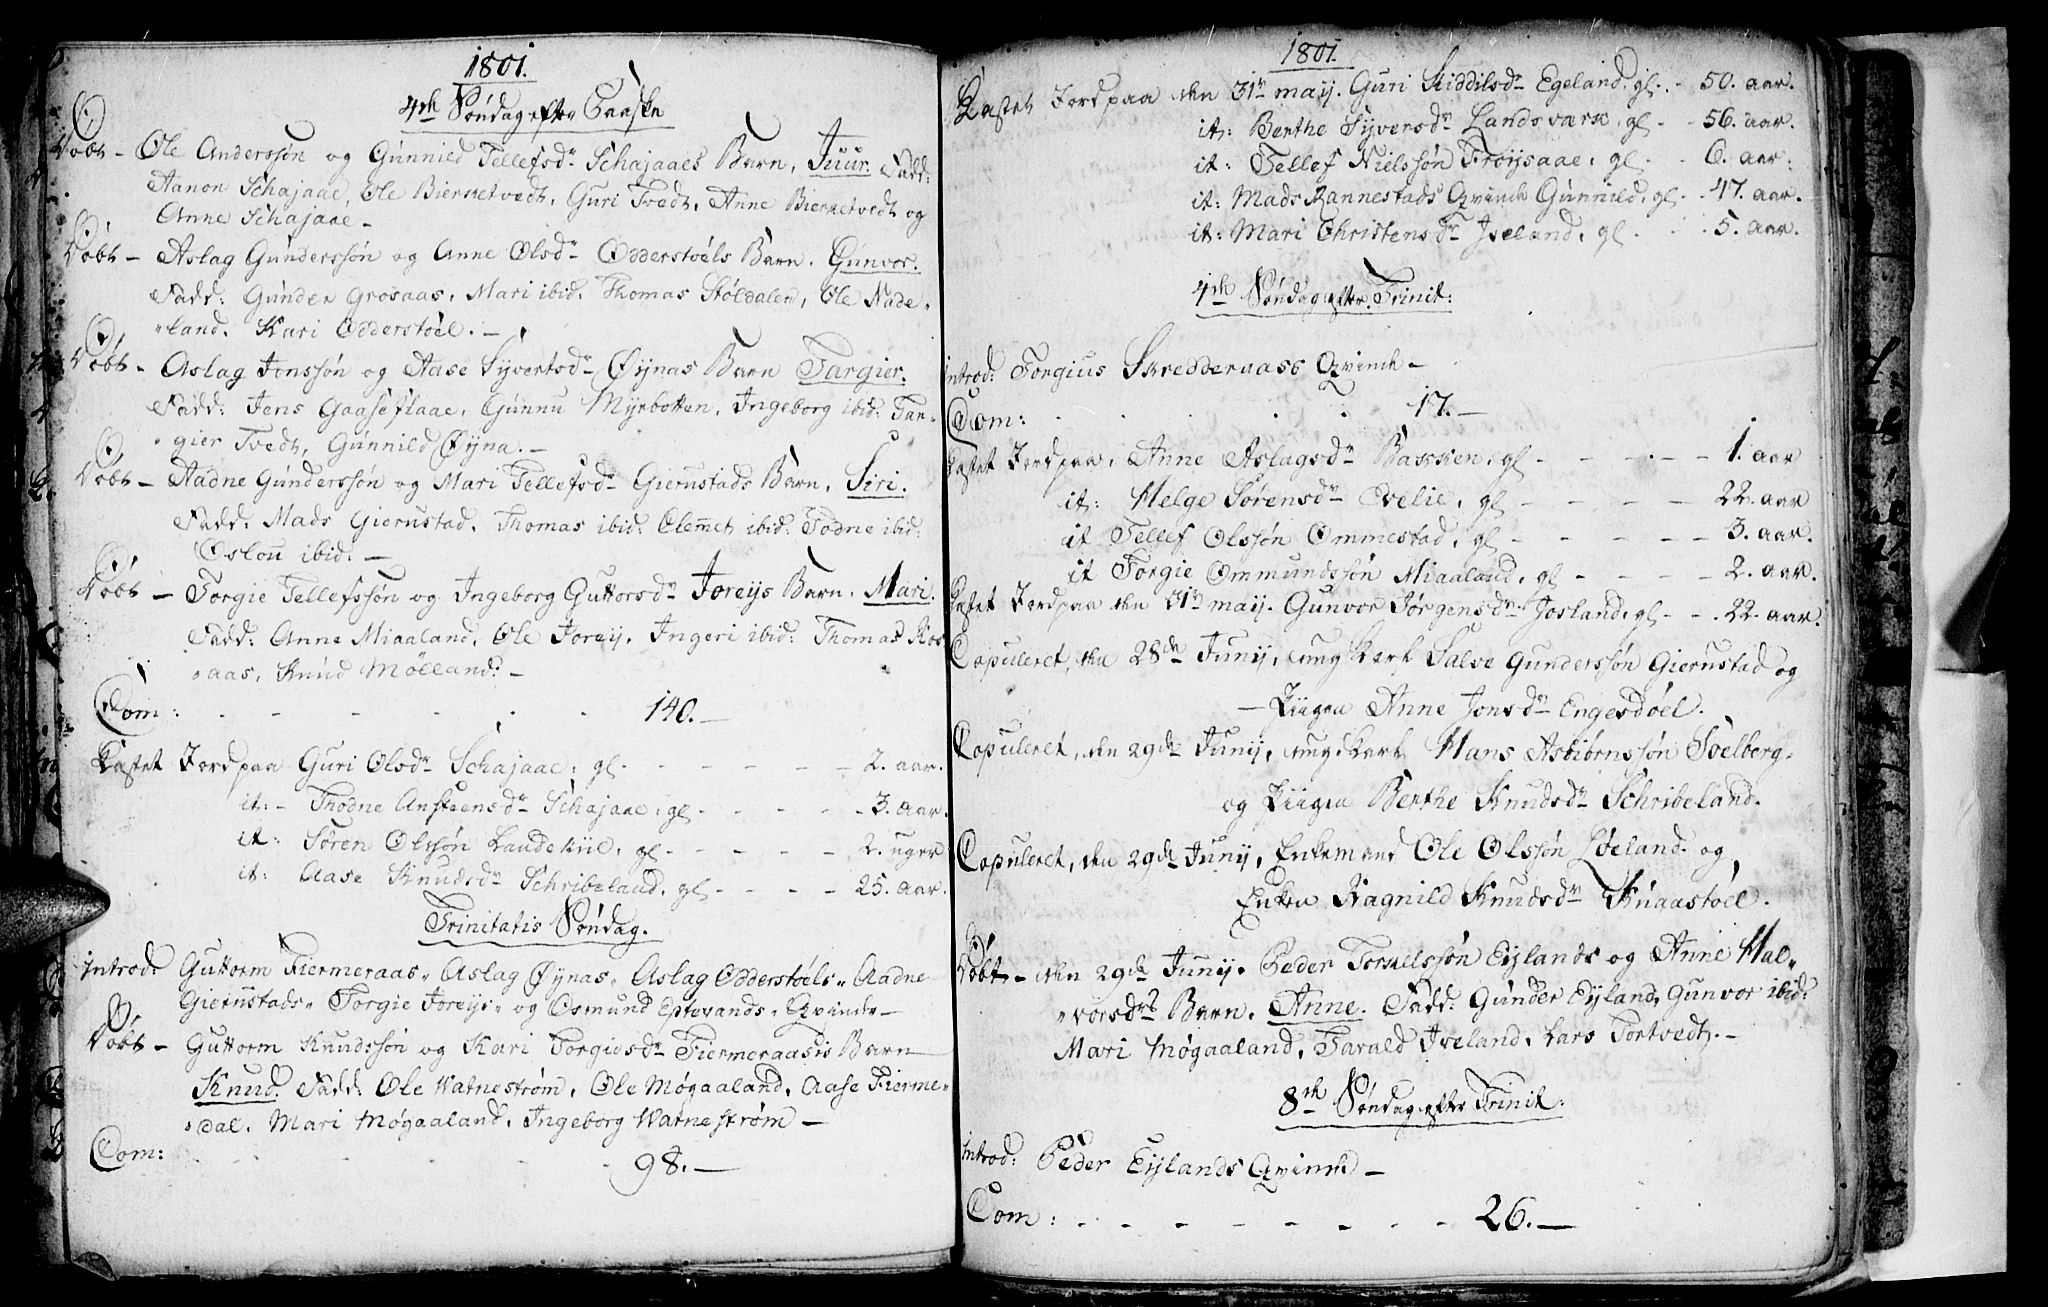 1801.
4de Søndag efter Paaske
Døbt – Ole Anderssøn og Gunnild Tellefsdr Schajaaes Barn, Juur. Fadd:
Aanon Schajaae, Ole Biernetvedt, Guri Tvedt, Anne Biernetvedt og
Anne Schajaae –
Døbt – Aslag Gunderssøn og Anne Olsdr Odderstoels Barn. Gunvor.
Fadd: Gunder Grosaas, Mari ibid, Thomas Stöldalen, Ole Nade-
-land, Kari Odderstoel. –
Døbt – Aslag Jonssøn og Aase Syvertsdr Øynas Barn Targier.
Fadd: Jens Gaaseflaae, Gunnu Myrbotten, Ingeborg ibid: Tar-
-gier Tvedt, Gunnild Øyna. –
Døbt – Aadne Gunderssøn og Mari Tellefsdr Gierustads Barn, Siri.
Fadd: Mads Gierustad, Thomas ibid: Clemet ibid: Todne ibid:
Oslou ibid: –
Døbt – Torgie Tellefssøn og Ingeborg Guttorsdr Foreijs Barn. Mari.
Fadd: Anne Miaaland, Ole Foreij, Ingeri ibid: Thomas Ros-
-aas, Knud Mølland. –
Com: 140. –
Kastet Jord paa Guri Olsdr Schajaae, gl. – 2. aar.
it: – Thodne Ansteensdr Schajaae, gl – 3. aar.
it: Søren Olssøn Laudekiie, gl – 2. uger
it: Aase Knudsdr Schribeland, gl – 25. aar.
Trinitatis Søndag.
Introd: Guttorm Fiermeraas, Aslag Øynas, Aslag Odderstoels, Aadne
Gierustads, Torgie Foreijs, og Osmund Eptevands, Qvinder –
Døbt – Guttorm Knudssøn og Kari Torgiesdr Fiermeraasis Barn
Knud. Fadd: Ole Watnestrøm, Ole Møgaaland, Aase Fierme-
-dal, Mari Møgaaland, Ingeborg Watnestrøm –
Com: 98. –
1801.
Kastet Jord paa den 31te maij. Guri Kiddilsdr Egeland, gl. – 50. aar.
it: Berthe Syversdr Landsværk, gl – 56. aar.
it: Tellef Nielssøn Frøysaae, gl – 6. aar.
it: Mads Rannestads Qvinde Gunnild, gl – 47. aar.
it: Mari Christensdr Iveland, gl – 5. aar.
4de Søndag efter Trinit:
Introd: Torgius Skreddernaas Qvinde –
Com: 17. –
Kastet Jord paa, Anne Aslagsdr Bakken, gl – 1. aar
it: Helge Sørensdr Evelie, gl – 22. aar
it Tellef Olssøn Ommestad, gl – 3. aar.
it Torgie Ommundssøn Miaaland, gl – 2. aar.
Kastet Jord paa den 31te maij. Gunvor Jørgensdr Josland, gl – 22. aar.
Copuleret, den 28de Junij, ung Karl Salve Gunderssøn Gierustad og
– Piigen Anne Jonsdr Engesdoel.
Copuleret, den 29de Junij, ung Karl Hans Asbiørnssøn Søelberg.
og Piigen Berthe Knudsdr Schribeland.
Copuleret, den 29de Junij, Enkemand Ole Olssøn Løeland og
Enken Ragnild Knudsdr Knaastoel.
Døbt – den 29de Junij. Peder Tornelssøn Eijlands og Anne Hal-
-voersdrs Barn. Anne. Fadd: Gunder Eijland, Gunvor ibid:
Mari Møgaaland, Tarald Iveland, Lars Tortvedt. –
8de Søndag efter Trinit:
Introd: Peder Eijlands Qvinde –
Com: 26. –